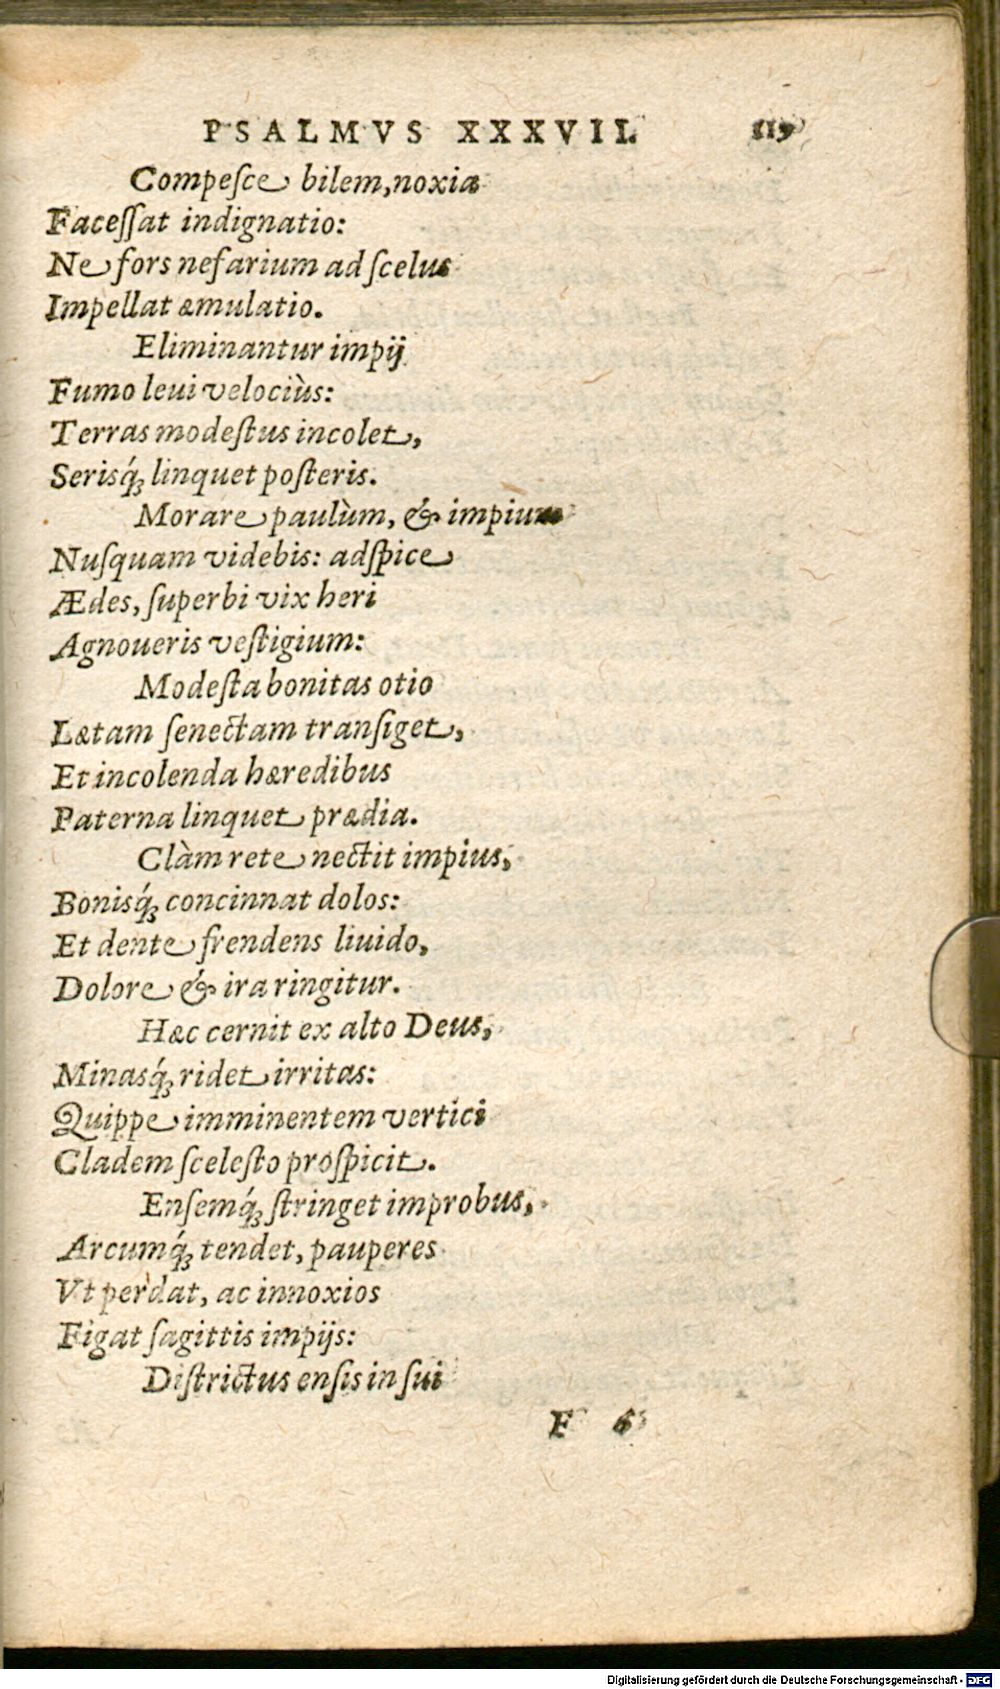 PSALMVS XXXVII. 119
Compeſce bilem, noxia
Faceſſat indignatio:
Ne fors nefarium ad ſcelus
Impellat æmulatio.
Eliminantur impij
Fumo leui velociùs:
Terras modeſtus incolet,
Serisq́; linquet poſteris.
Morare paulùm, & impium
Nuſquam videbis: adſpice
Ædes, ſuperbi vix heri
Agnoueris veſtigium:
Modeſta bonitas otio
Lætam ſenectam tranſiget,
Et incolenda hæredibus
Paterna linquet prædia.
Clàm rete nectit impius,
Bonisq́; concinnat dolos:
Et dente frendens liuido,
Dolore & ira ringitur.
Hæc cernit ex alto Deus,
Minasq́; ridet irritas:
Quippe imminentem vertici
Cladem ſceleſto proſpicit.
Enſemq́; ſtringet improbus,
Arcumq́; tendet, pauperes
Vt perdat, ac innoxios
Figat ſagittis impijs:
Diſtrictus enſis in ſui
F 6
Digitalisierung gefördert durch die Deutsche Forschungsgemeinschaft - DFG